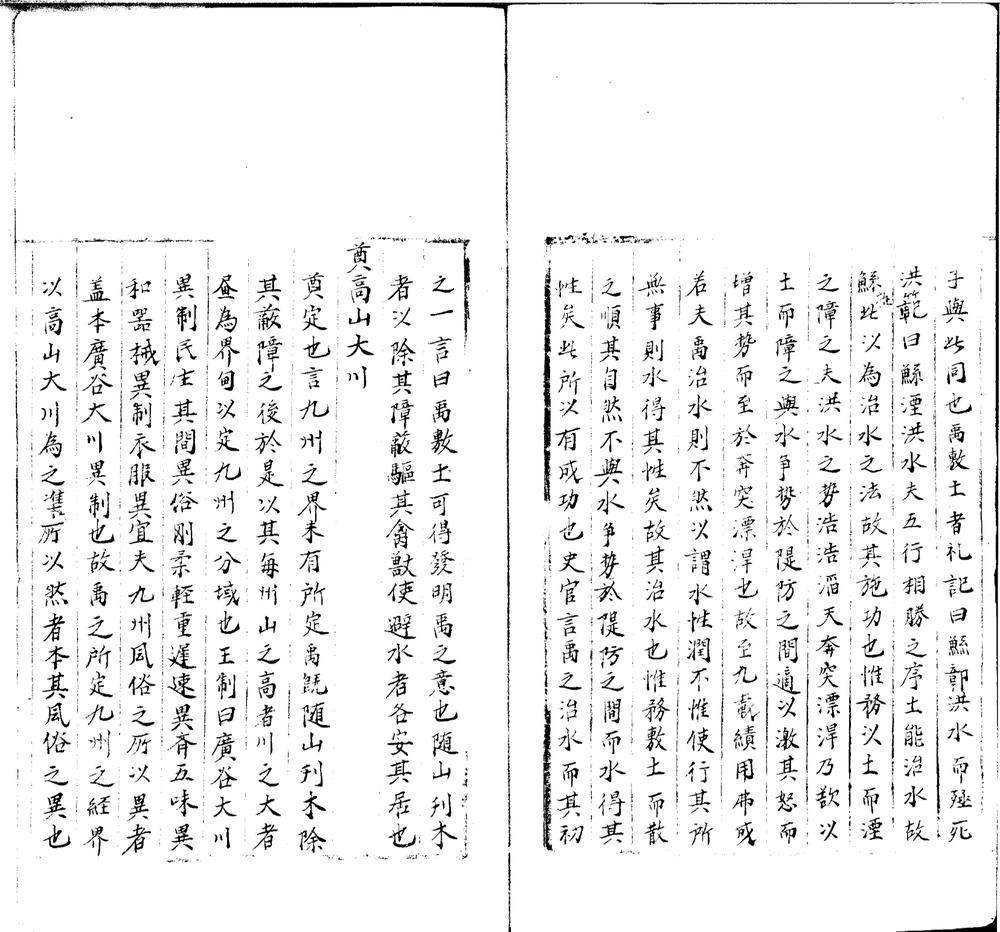 子與此同也禹敷土者礼記曰鯀鄣洪水而殛死
洪範曰鯀湮洪水夫五行相勝之序土能治水故
鯀此以為治水之法故其施功也惟務以土而湮
之障之夫洪水之勢浩浩滔天奔突漂潬乃欲以
土而障之與水争勢於隄防之間適以激其怒而
增其勢而至於奔突漂潬也故至九載績用弗成
若夫禹治水則不然以謂水性潤不惟使行其所
無事則水得其性矣故其治水也惟務敷土而散
之順其自然不與水争勢於隄防之間而水得其
性矣此所以有成功也史官言禹之治水而其初
之一言曰禹敷土可得發明禹之意也随山刋木
者以除其障蔽驅其禽獸使避水者各安其居也
奠高山大川
奠定也言九州之界未有所定禹旣随山刋木除
其蔽障之後於是以其每州山之高者川之大者
昼為界甸以定九州之分域也王制曰廣谷大川
異制民生其間異俗刚柔輕重遲速異斉五味異
和器械異制衣服異宜夫九州風俗之所以異者
盖本廣谷大川異制也故禹之所定九州之経界
以高山大川為之準所以然者本其風俗之異也